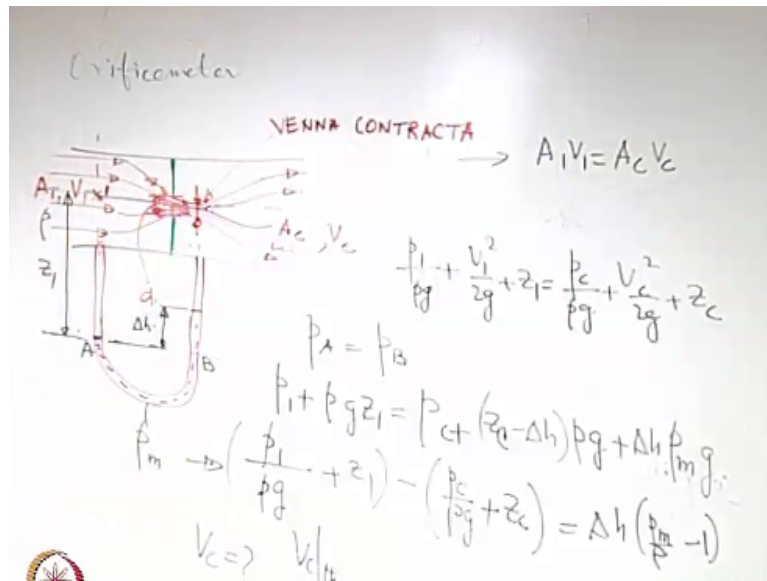 Orificemeter
VENNA CONTRACTA
→ A₁V₁ = A_c V_c
1
1
A₁, V₁
ρ
A_c, V_c
Z₁
d
Δh
A
B
ρ_m
p₁/ρg + V₁²/2g + z₁ = p_c/ρg + V_c²/2g + z_c
p_A = p_B
p₁ + ρgz₁ = p_c + (z_c - Δh)ρg + Δhρ_m g
→ (p₁/ρg + z₁) - (p_c/ρg + z_c) = Δh(ρ_m/ρ - 1)
V_c = ? V_c|